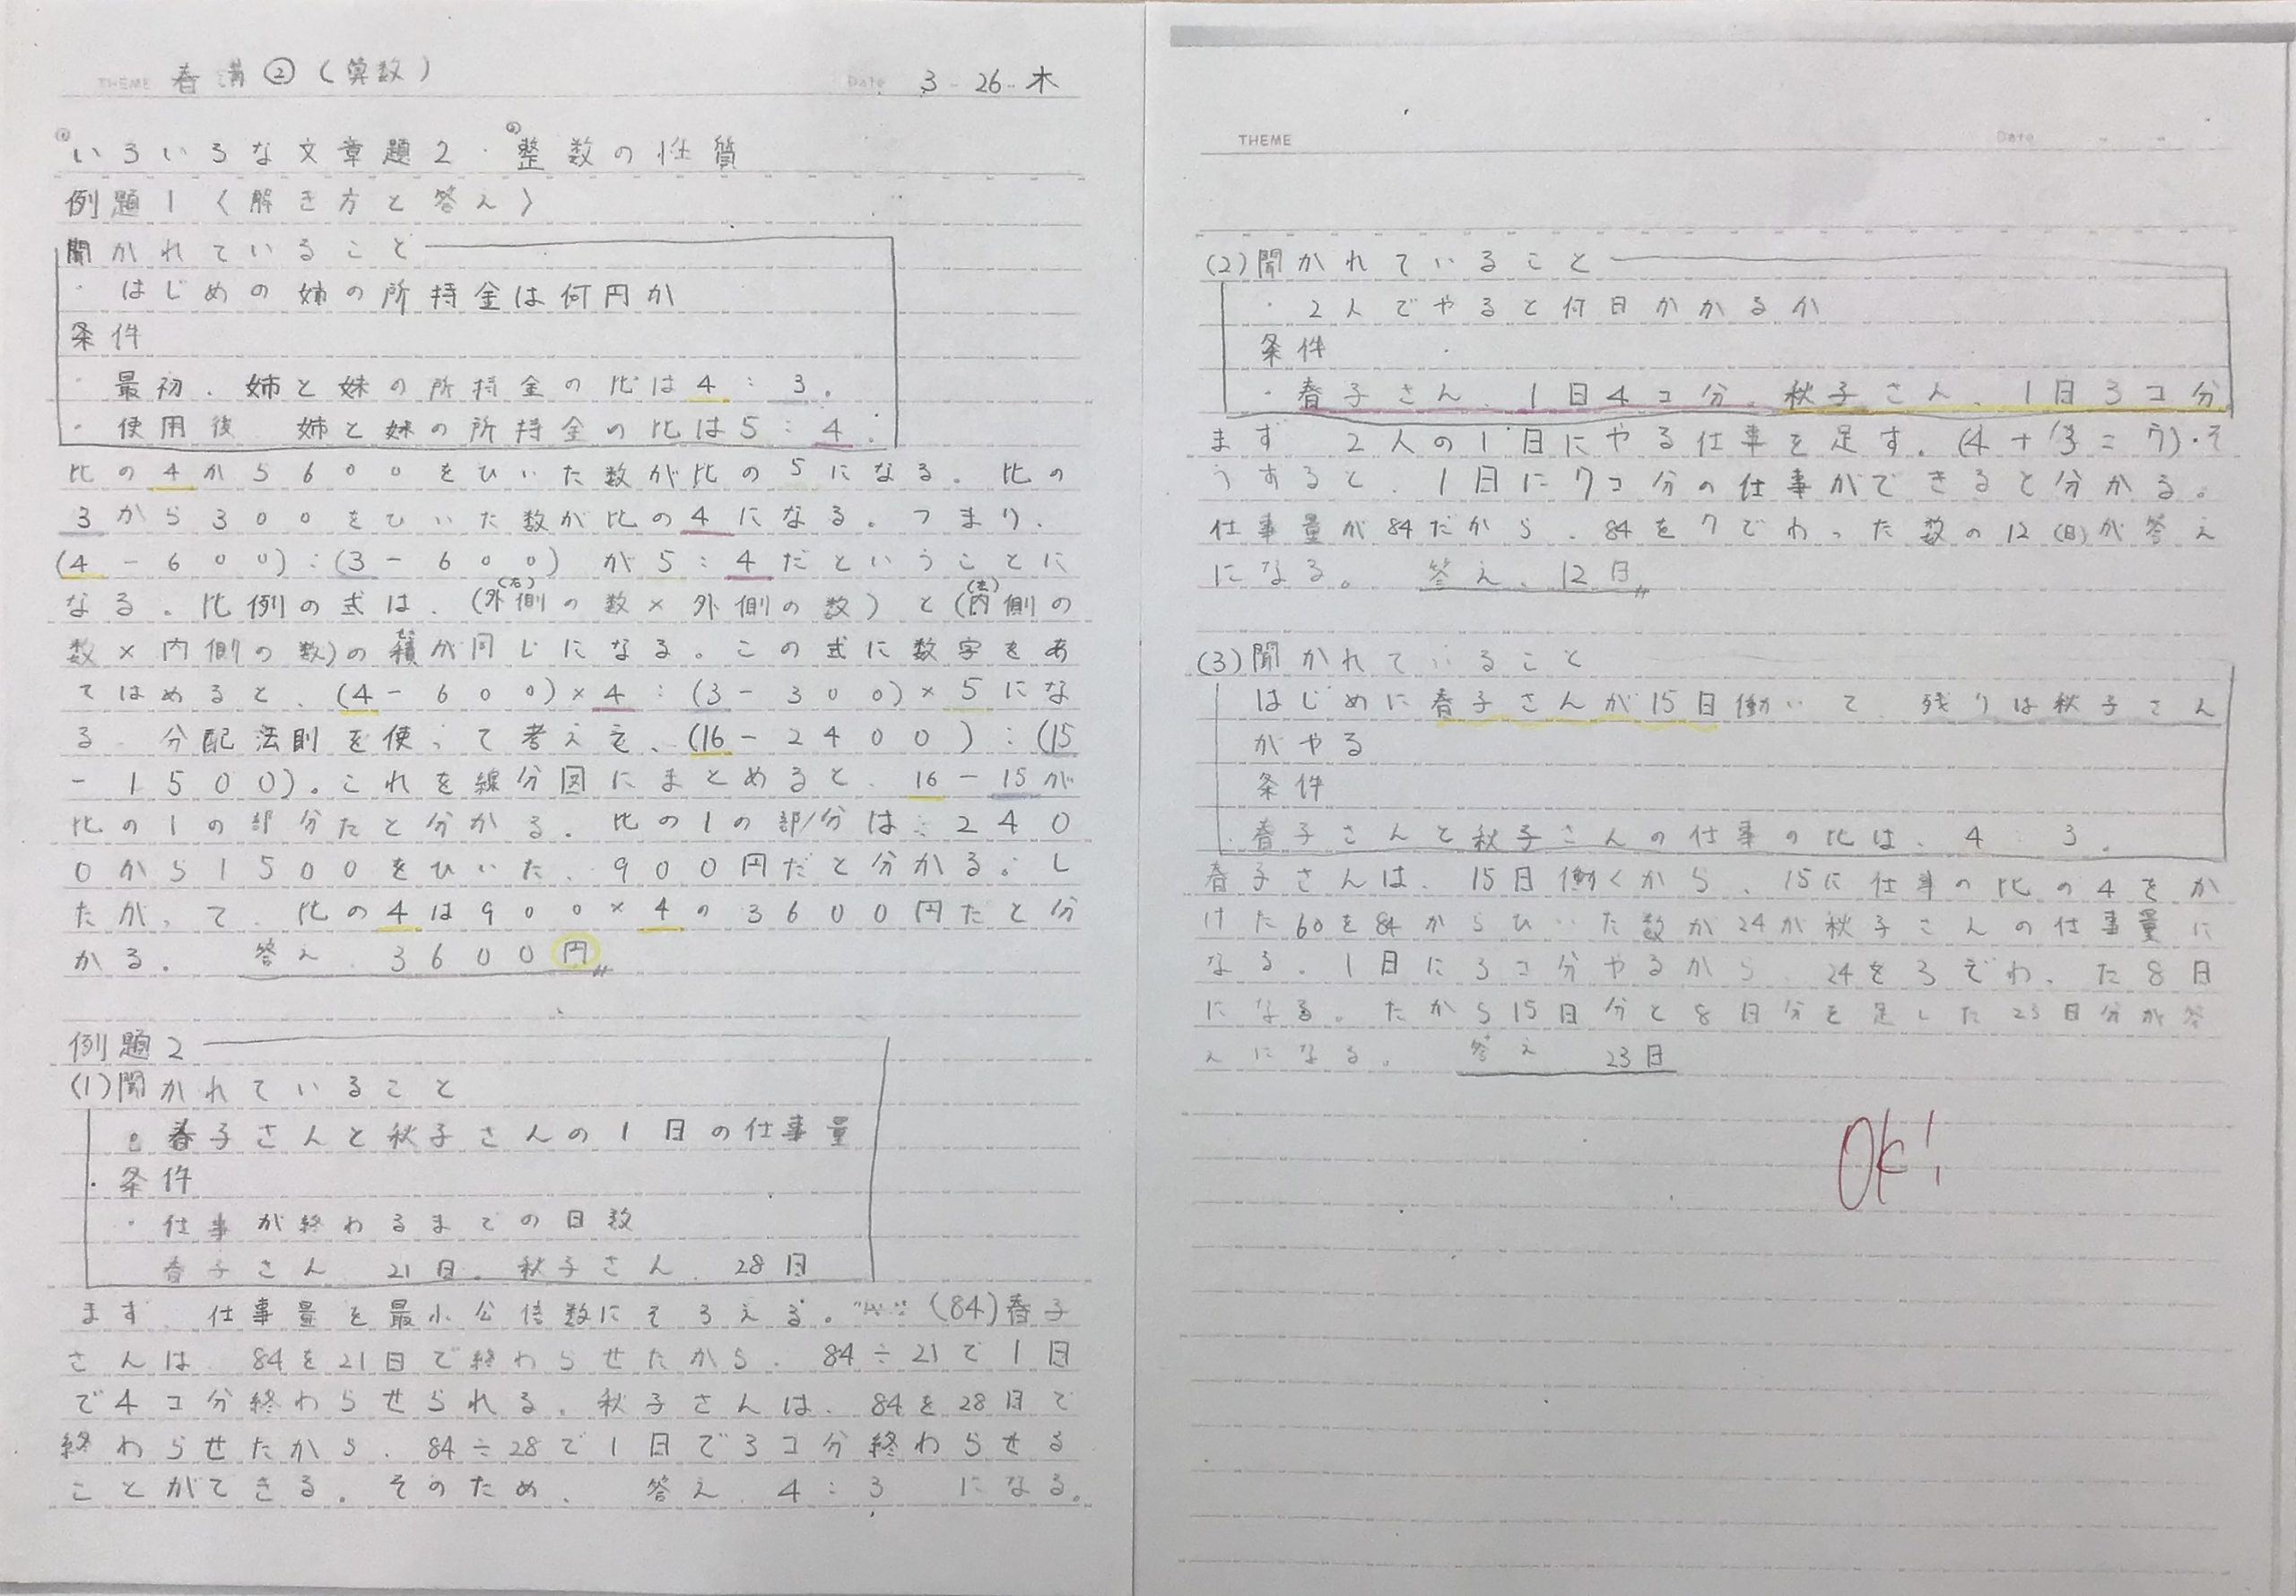 THEME 春講②(算数) Date 3-26-木
いろいろな文章題2・整数の性質
例題1〈解き方と答え〉
聞かれていること
・はじめの姉の所持金は何円か
条件
・最初、姉と妹の所持金の比は4:3。
・使用後、姉と妹の所持金の比は5:4。
比の4から600をひいた数が比の5になる。比の
3から300をひいた数が比の4になる。つまり、
(4-600):(3-600)が5:4だということに
なる。比例の式は、(外側の数×外側の数)と(内側の
数×内側の数)の積が同じになる。この式に数字をあ
てはめると、(4-600)×4:(3-300)×5にな
る。分配法則を使って考えて、(16-2400):(15
-1500)。これを線分図にまとめると、16-15が
比の1の部分だと分かる。比の1の部分は、240
0から1500をひいた、900円だと分かる。し
たがって、比の4は900×4の3600円だと分
かる。 答え、3600円
例題2
(1)聞かれていること
・春子さんと秋子さんの1日の仕事量
・条件
・仕事が終わるまでの日数
春子さん、21日。秋子さん、28日
まず、仕事量を最小公倍数にそろえる。(84)春子
さんは、84を21日で終わらせたから、84÷21で1日
で4コ分終わらせられる。秋子さんは、84を28日で
終わらせたから、84÷28で1日で3コ分終わらせる
ことができる。そのため、 答え、4:3 になる。
THEME Date
(2)聞かれていること
・2人でやると何日かかるか
条件
・春子さん、1日4コ分。秋子さん、1日3コ分
まず、2人の1日にやる仕事を足す。(4+3=7)そ
うすると、1日に7コ分の仕事ができると分かる。
仕事量が84だから、84を7でわった数の12(日)が答え
になる。 答え、12日
(3)聞かれていること
はじめに春子さんが15日働いて、残りは秋子さん
がやる
条件
・春子さんと秋子さんの仕事の比は、4:3。
春子さんは、15日働くから、15に仕事の比の4をか
けた60を84からひいた数が24が秋子さんの仕事量に
なる。1日に3コ分やるから、24を3でわった8日
になる。だから15日分と8日分を足した23日分が答
えになる。 答え 23日
OK!